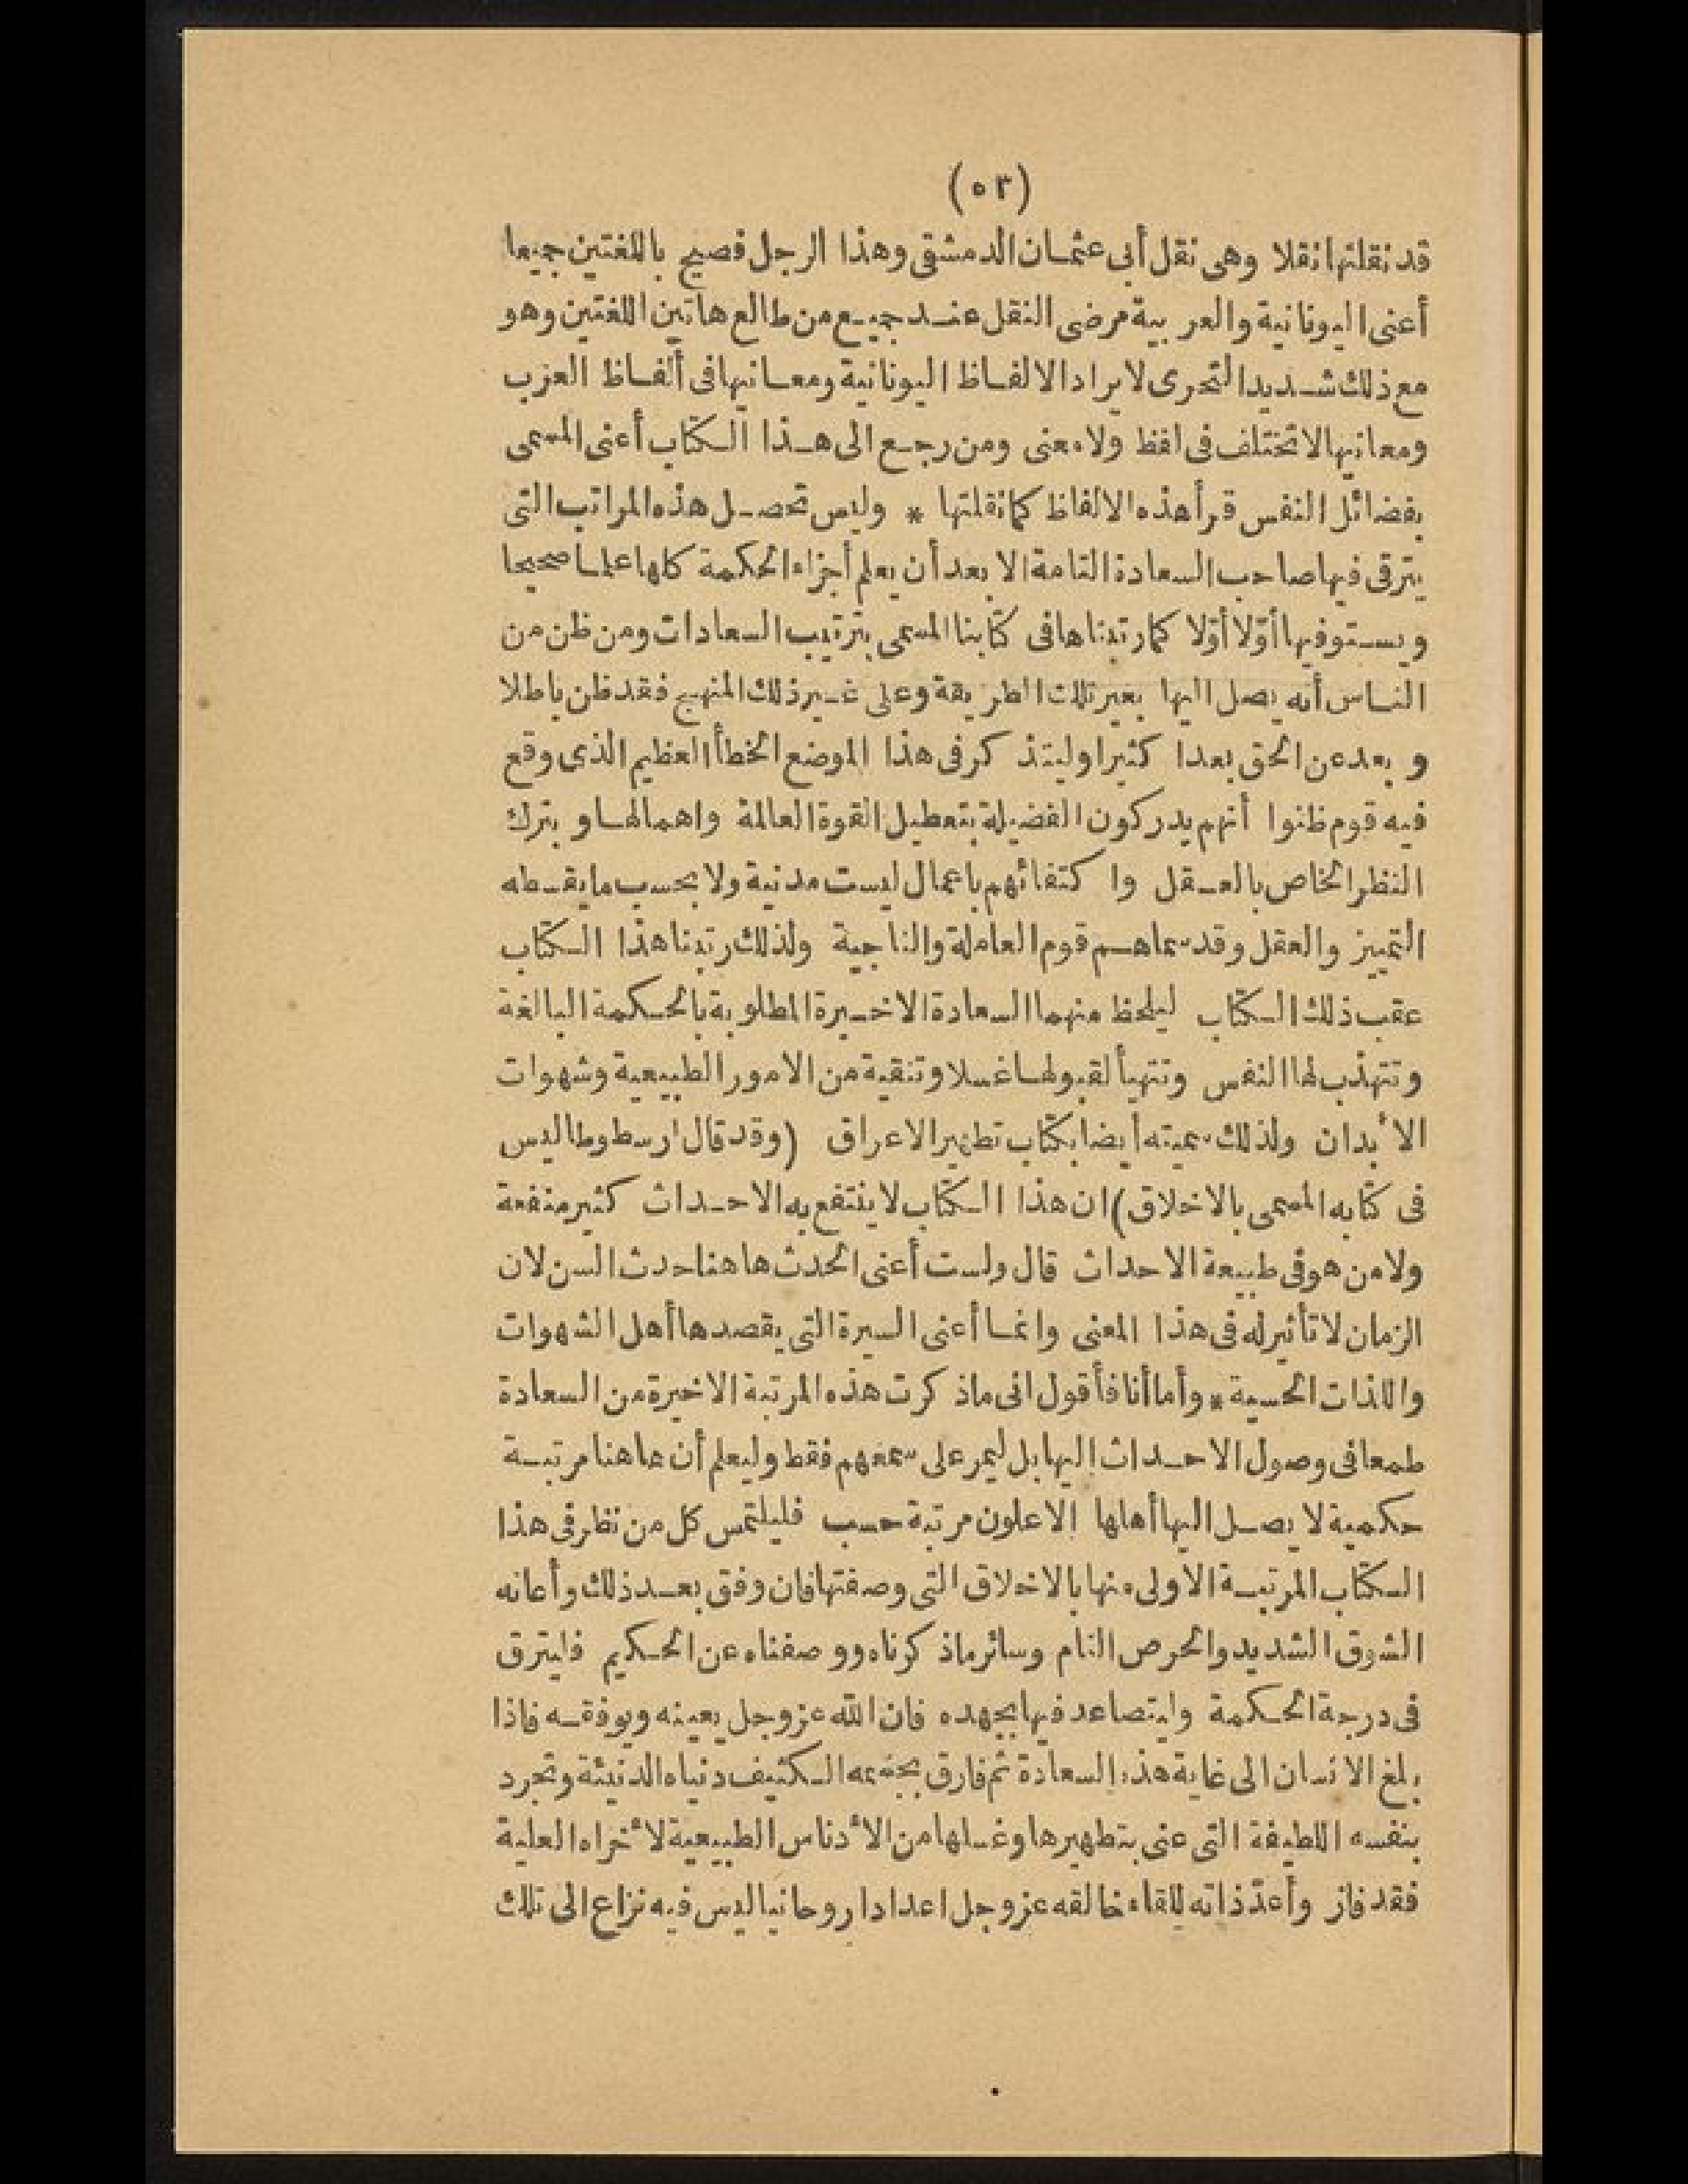 (٥٣)
قد نقلتها نقلا وهى نقل أبى عثمان الدمشقى وهذا الرجل فصيح باللغتين جميعا
أعنى اليونانية والعربية مرضى النقل عند جميع من طالع هاتين اللغتين وهو
مع ذلك شديد التحرى لايراد الالفاظ اليونانية ومعانيها فى ألفاظ العرب
ومعانيها لا تختلف فى لفظ ولا معنى ومن رجع الى هذا الكتاب أعنى المسمى
بفضائل النفس قرأ هذه الالفاظ كما نقلتها * وليس تحصل هذه المراتب التى
يترقى فيها صاحب السعادة التامة الا بعد أن يعلم أجزاء الحكمة كلها علما صحيحا
ويستوفيها أوّلا أوّلا كما رتبناها فى كتابنا المسمى بترتيب السعادات ومن ظن من
الناس أنه يصل اليها بغير تلك الطريقة وعلى غير ذلك المنهج فقد ظن باطلا
وبعد عن الحق بعدا كثيرا وليتذكر فى هذا الموضع الخطأ العظيم الذى وقع
فيه قوم ظنوا أنهم يدركون الفضيلة بتعطيل القوة العالمة واهمالها وبترك
النظر الخاص بالعقل واكتفائهم باعمال ليست مدنية ولا بحسب ما يقسطه
التمييز والعقل وقد سماهم قوم العاملة والناجية ولذلك رتبنا هذا الكتاب
عقب ذلك الكتاب ليلحظ منهما السعادة الاخيرة المطلوبة بالحكمة البالغة
وتتهذب لها النفس وتتهيأ لقبولها غسلا وتنقية من الامور الطبيعية وشهوات
الأبدان ولذلك سميته أيضا بكتاب تطهير الاعراق (وقد قال ارسطوطاليس
فى كتابه المسمى بالاخلاق) ان هذا الكتاب لا ينتفع به الاحداث كثير منفعة
ولا من هو فى طبيعة الاحداث قال ولست أعنى الحدث هاهنا حدث السن لان
الزمان لا تأثير له فى هذا المعنى وانما أعنى السيرة التى يقصدها أهل الشهوات
واللذات الحسية * وأما أنا فأقول انى ما ذكرت هذه المرتبة الاخيرة من السعادة
طمعا فى وصول الاحداث اليها بل ليمر على سمعهم فقط وليعلم أن هاهنا مرتبة
حكمية لا يصل اليها أهلها الاعلون مرتبة حسب فليلتمس كل من نظر فى هذا
الكتاب المرتبة الاولى منها بالاخلاق التى وصفتها فان وفق بعد ذلك وأعانه
الشوق الشديد والحرص التام وسائر ما ذكرناه ووصفناه عن الحكيم فليترق
فى درجة الحكمة وليتصاعد فيها بجهده فان الله عز وجل يعينه ويوفقه فاذا
بلغ الانسان الى غاية هذه السعادة ثم فارق بجسمه الكثيف دنياه الدنيئة وتجرد
بنفسه اللطيفة التى عنى بتطهيرها وغسلها من الأدناس الطبيعية لأخراه العلية
فقد فاز وأعدّ ذاته للقاء خالقه عز وجل اعدادا روحانيا ليس فيه نزاع الى تلك